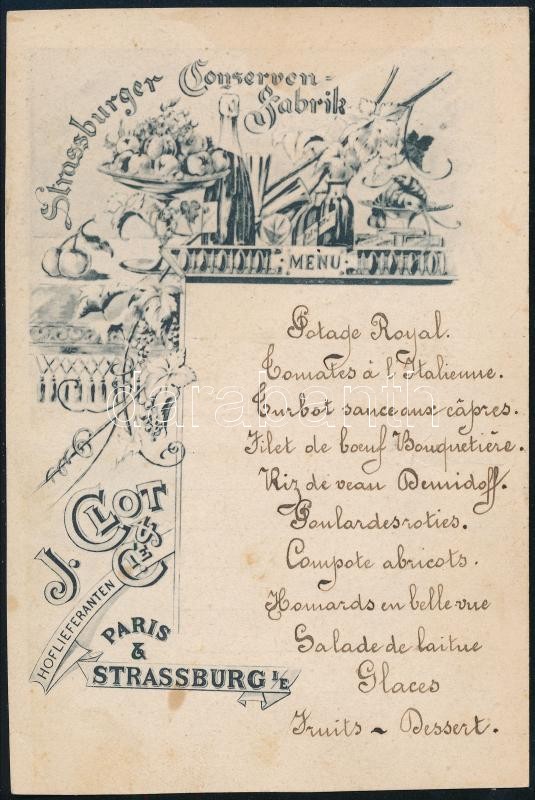 Strassburger Conserven-
Fabrik
MENU
Potage Royal.
Tomates à l'Italienne.
Turbot sauce aux câpres.
Filet de bœuf Bouquetière.
Riz de veau Demidoff.
Poulardes roties.
Compote abricots.
Homards en belle vue
Salade de laitue
Glaces
Fruits ~ Dessert.
J. CLOT
& Cie
HOFLIEFERANTEN
PARIS
&
STRASSBURG i/E
darabanth